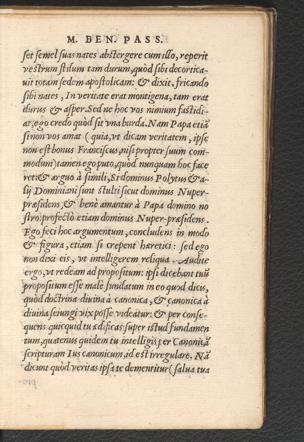 M. BEN. PASS.
set semel suas nates abstergere cum illo, reperit
vestrum stilum tam durum, quòd sibi decortica-
uit totam sedem apostolicam: & dixit, fricando
sibi nates, In veritate erat montigena, tam erat
durus & asper. Sed ne hoc vos nimum fastidi-
at, ego credo quòd sit vna burda. Nam Papa etiã
si non vos amat (quia, vt dicam veritatem, ipse
non est bonus Franciscus, nisi propter suum com-
modum) tamen ego puto, quòd nunquam hoc face
ret: & arguo à simili, Si dominus Polytus & a-
lij Dominiani sunt stulti sicut dominus Nuper-
præsidens, & bene amantur à Papa domino no
stro: profectò etiam dominus Nuper-præsidens.
Ego feci hoc argumentum, concludens in modo
& figura, etiam si crepent hæretici: sed ego
non dixi eis, vt intelligerem reliqua. Audite
ergo, vt redeam ad propositum: ipsi dicebant tuũ
propositum esse malè fundatum in eo quod dicis,
quòd doctrina diuina à canonica, & canonica à
diuina seiungi vix posse videatur: & per conse-
quens quicquid tu ædificas super istud fundamen
tum, quatenus quidem tu intelligis per Canonicã
scripturam Ius canonicum, id est irregulare. Nã
dicunt quòd veritas ipsa te dementitur (salua tua